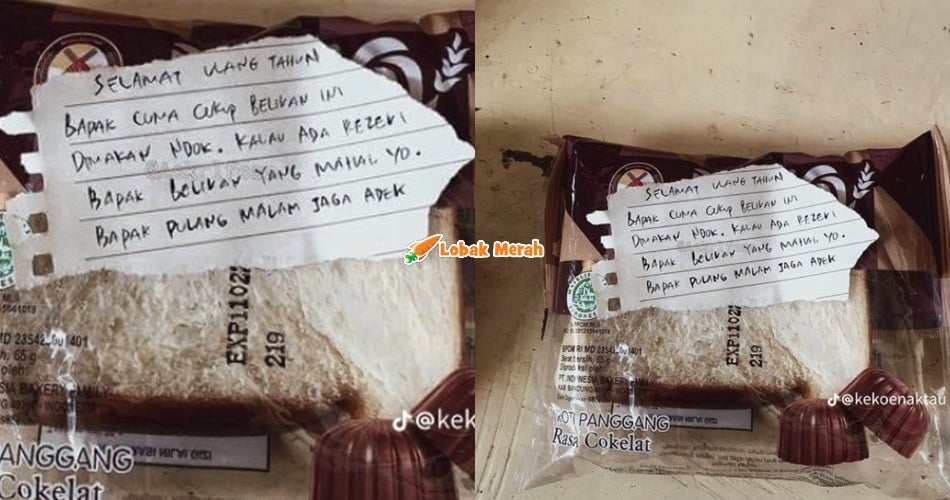 SELAMAT ULANG TAHUN
BAPAK CUMA CUKUP BELIKAN INI
DIMAKAN NDOK. KALAU ADA REZEKI
BAPAK BELIKAN YANG MAHAL YO.
BAPAK PULANG MALAM JAGA ADEK
EXP1102
219
MD 23542 001401
65 g
oleh:
SIA BAKERY FAMILY
ANGGANG
Cokelat
@kek
Lobak Merah
SELAMAT ULANG TAHUN
BAPAK CUMA CUKUP BELIKAN INI
DIMAKAN NDOK. KALAU ADA REZEKI
BAPAK BELIKAN YANG MAHAL YO.
BAPAK PULANG MALAM JAGA ADEK
EXP1102
219
BPOM RI MD 23542 001401
Berat bersih: 65 g
Diproduksi oleh:
PT. INDONESIA BAKERY FAMILY
KAB BANDUNG
ROTI PANGGANG
Rasa Cokelat
@kekoenaktau